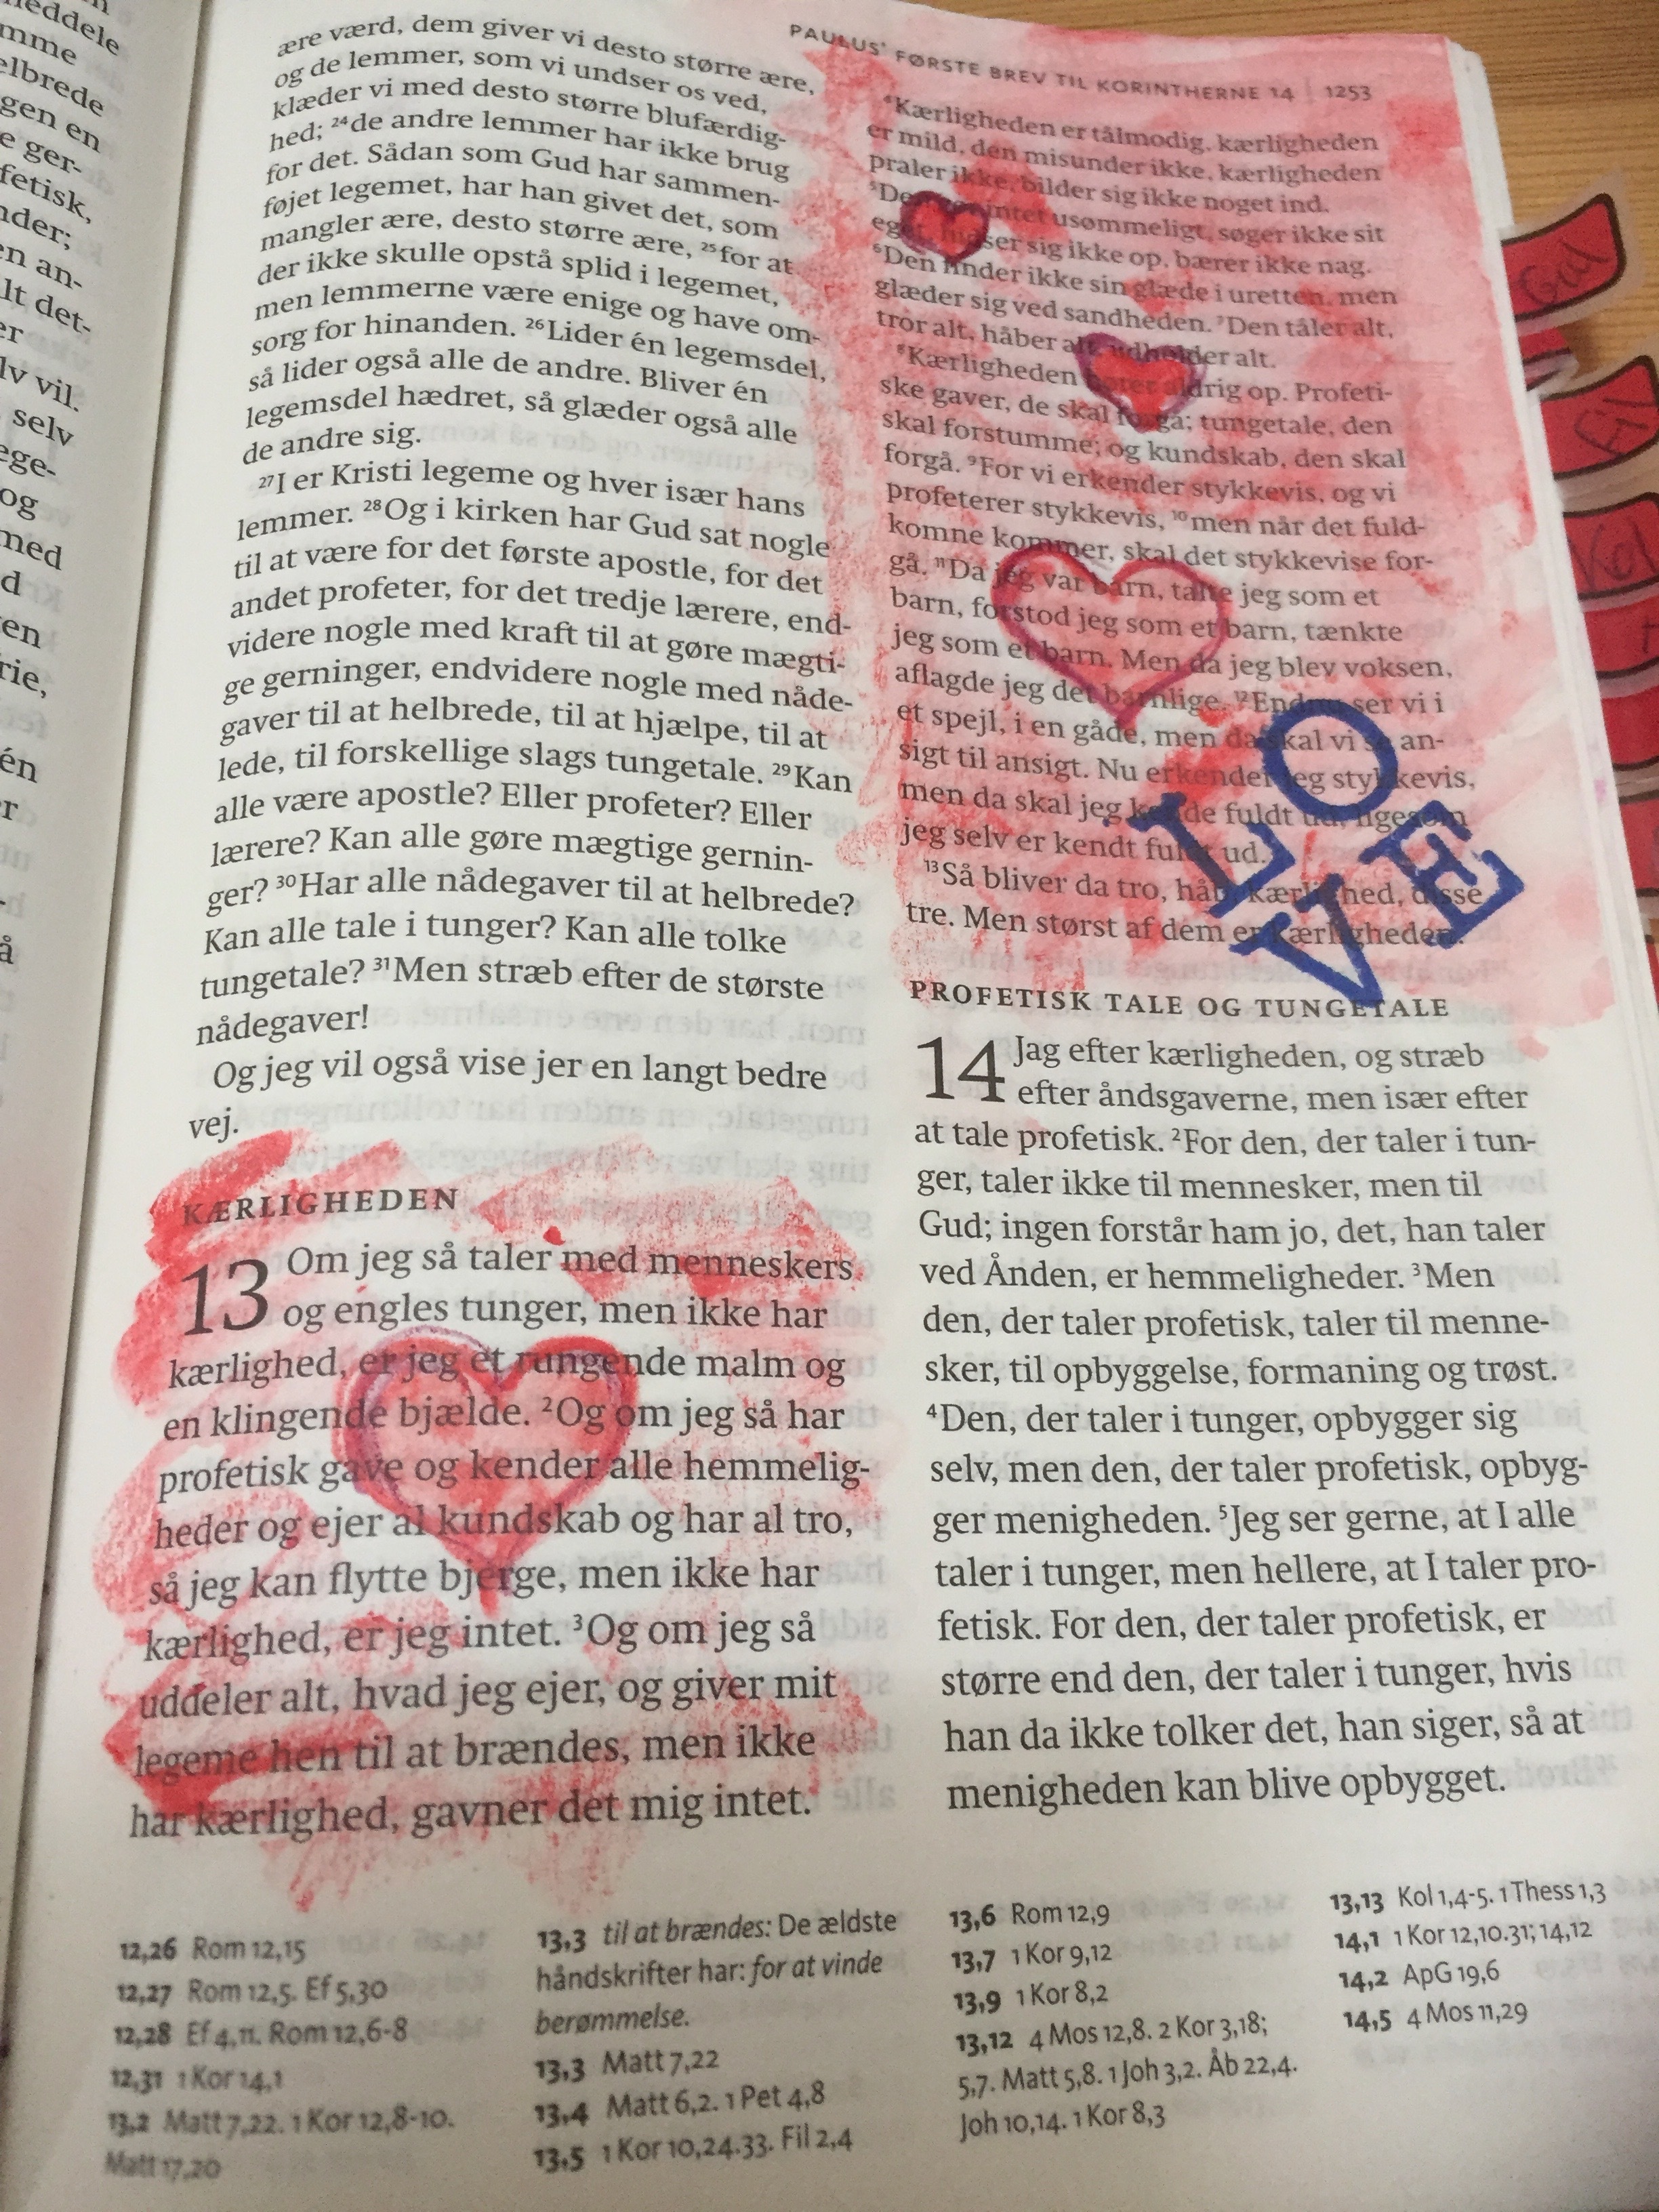 neddele
mme
elbrede
gen en
e ger-
fetisk,
nder;
en an-
lt det-
er
lv vil.
selv
ege-
og
med
d
en
rie,
én
r
å
ære værd, dem giver vi desto større ære,
og de lemmer, som vi undser os ved,
klæder vi med desto større blufærdig-
hed; 24de andre lemmer har ikke brug
for det. Sådan som Gud har sammen-
føjet legemet, har han givet det, som
mangler ære, desto større ære, 25for at
der ikke skulle opstå splid i legemet,
men lemmerne være enige og have om-
sorg for hinanden. 26Lider én legemsdel,
så lider også alle de andre. Bliver én
legemsdel hædret, så glæder også alle
de andre sig.
27I er Kristi legeme og hver især hans
lemmer. 28Og i kirken har Gud sat nogle
til at være for det første apostle, for det
andet profeter, for det tredje lærere, end-
videre nogle med kraft til at gøre mægti-
ge gerninger, endvidere nogle med nåde-
gaver til at helbrede, til at hjælpe, til at
lede, til forskellige slags tungetale. 29Kan
alle være apostle? Eller profeter? Eller
lærere? Kan alle gøre mægtige gernin-
ger? 30Har alle nådegaver til at helbrede?
Kan alle tale i tunger? Kan alle tolke
tungetale? 31Men stræb efter de største
nådegaver!
Og jeg vil også vise jer en langt bedre
vej.
KÆRLIGHEDEN
13 Om jeg så taler med menneskers
og engles tunger, men ikke har
kærlighed, er jeg et rungende malm og
en klingende bjælde. 2Og om jeg så har
profetisk gave og kender alle hemmelig-
heder og ejer al kundskab og har al tro,
så jeg kan flytte bjerge, men ikke har
kærlighed, er jeg intet. 3Og om jeg så
uddeler alt, hvad jeg ejer, og giver mit
legeme hen til at brændes, men ikke
har kærlighed, gavner det mig intet.
PAULUS' FØRSTE BREV TIL KORINTHERNE 14 | 1253
4Kærligheden er tålmodig, kærligheden
er mild, den misunder ikke, kærligheden
praler ikke, bilder sig ikke noget ind.
5Den gør intet usømmeligt, søger ikke sit
eget, hidser sig ikke op, bærer ikke nag.
6Den finder ikke sin glæde i uretten, men
glæder sig ved sandheden. 7Den tåler alt,
tror alt, håber alt, udholder alt.
8Kærligheden hører aldrig op. Profeti-
ske gaver, de skal forgå; tungetale, den
skal forstumme; og kundskab, den skal
forgå. 9For vi erkender stykkevis, og vi
profeterer stykkevis, 10men når det fuld-
komne kommer, skal det stykkevise for-
gå. 11Da jeg var barn, talte jeg som et
barn, forstod jeg som et barn, tænkte
jeg som et barn. Men da jeg blev voksen,
aflagde jeg det barnlige. 12Endnu ser vi i
et spejl, i en gåde, men da skal vi se an-
sigt til ansigt. Nu erkender jeg stykkevis,
men da skal jeg kende fuldt ud, ligesom
jeg selv er kendt fuldt ud.
13Så bliver da tro, håb, kærlighed, disse
tre. Men størst af dem er kærligheden.
LO
VE
PROFETISK TALE OG TUNGETALE
14 Jag efter kærligheden, og stræb
efter åndsgaverne, men især efter
at tale profetisk. 2For den, der taler i tun-
ger, taler ikke til mennesker, men til
Gud; ingen forstår ham jo, det, han taler
ved Ånden, er hemmeligheder. 3Men
den, der taler profetisk, taler til menne-
sker, til opbyggelse, formaning og trøst.
4Den, der taler i tunger, opbygger sig
selv, men den, der taler profetisk, opbyg-
ger menigheden. 5Jeg ser gerne, at I alle
taler i tunger, men hellere, at I taler pro-
fetisk. For den, der taler profetisk, er
større end den, der taler i tunger, hvis
han da ikke tolker det, han siger, så at
menigheden kan blive opbygget.
12,26 Rom 12,15
12,27 Rom 12,5. Ef 5,30
12,28 Ef 4,11. Rom 12,6-8
12,31 1 Kor 14,1
13,2 Matt 7,22. 1 Kor 12,8-10.
Matt 17,20
13,3 til at brændes: De ældste
håndskrifter har: for at vinde
berømmelse.
13,3 Matt 7,22
13,4 Matt 6,2. 1 Pet 4,8
13,5 1 Kor 10,24.33. Fil 2,4
13,6 Rom 12,9
13,7 1 Kor 9,12
13,9 1 Kor 8,2
13,12 4 Mos 12,8. 2 Kor 3,18;
5,7. Matt 5,8. 1 Joh 3,2. Åb 22,4.
Joh 10,14. 1 Kor 8,3
13,13 Kol 1,4-5. 1 Thess 1,3
14,1 1 Kor 12,10.31; 14,12
14,2 ApG 19,6
14,5 4 Mos 11,29
Gal
Fil
Kol